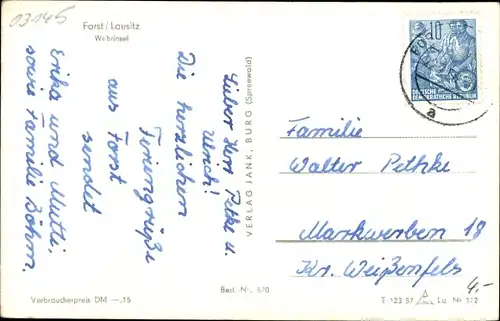 03145
Forst/Lausitz
Wehrinsel
Lieber Herr Petke u.
Ulrich!
Die herzlichen
Feriengrüße
aus Forst
sendet
Erika und Mutti,
sowie Familie Böhm.
VERLAG JANK, BURG (Spreewald)
10
DEUTSCHE
DEMOKRATISCHE REPUBLIK
a
Familie
Walter Pethke
Markwerben 18
Kr. Weißenfels
4,-
Verbraucherpreis DM —,15
Best.-Nr. 570
T 123 57 Lu Nr 172